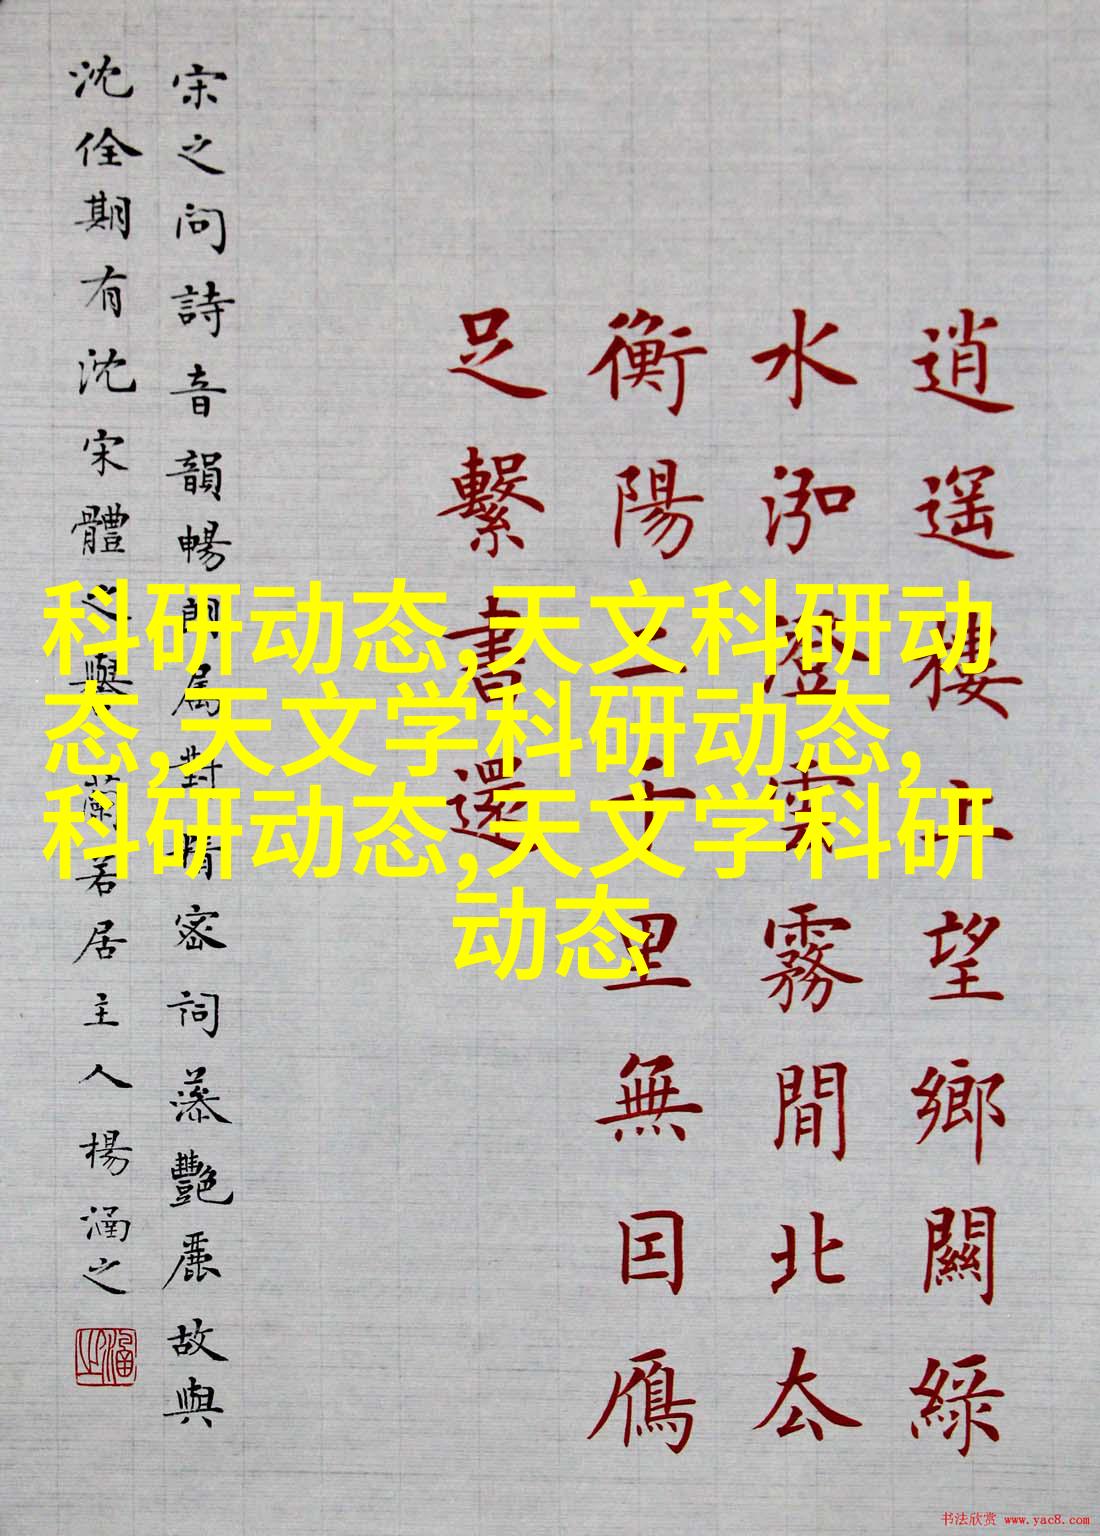 逍遥樓上望鄉關綠
水泓澄雲霧間北去
衡陽二千里無因雁
足繫書還
宋之问詩音韻暢朗属對精密詞藻艷麗故與
沈佺期有沈宋體之蘭若居主人楊涵之
涵之
科研动态,天文科研动
态,天文学科研动态,
科研动态,天文学科研
动态
书法欣赏 www.yac8.com